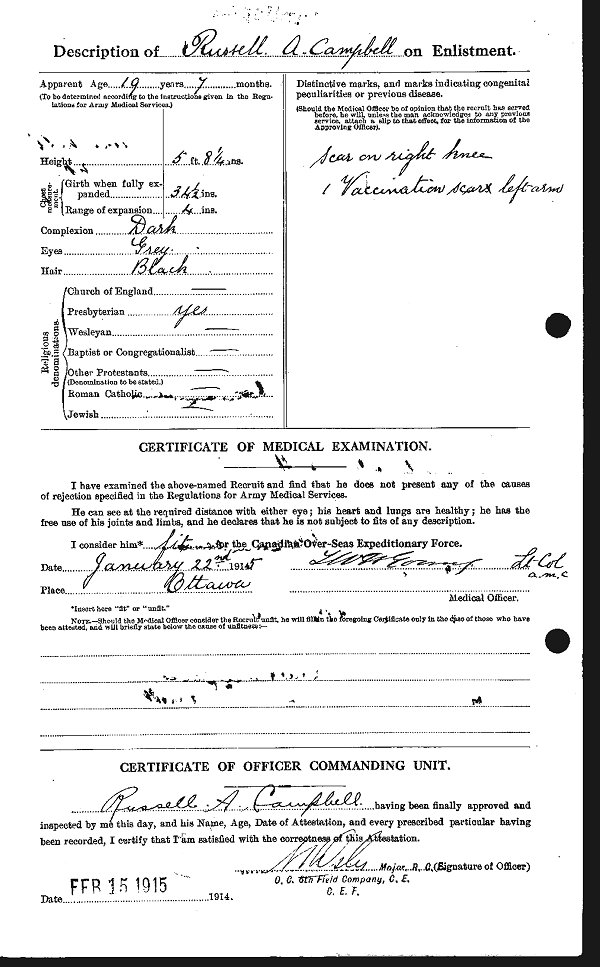 Description of Russell A. Campbell on Enlistment.
Apparent Age 19 years 7 months.
(To be determined according to the instructions given in the Regu-
lations for Army Medical Services.)
Height 5 ft. 8 1/4 ins.
Chest measurement.
Girth when fully ex-
panded 34 1/2 ins.
Range of expansion 4 ins.
Complexion Dark
Eyes Grey
Hair Black
Religious denominations.
Church of England —
Presbyterian yes
Wesleyan —
Baptist or Congregationalist —
Other Protestants —
(Denomination to be stated.)
Roman Catholic —
Jewish —
Distinctive marks, and marks indicating congenital
peculiarities or previous disease.
(Should the Medical Officer be of opinion that the recruit has served
before, he will, unless the man acknowledges to any previous
service, attach a slip to that effect, for the information of the
Approving Officer).
Scar on right knee
1 Vaccination scar left arm
CERTIFICATE OF MEDICAL EXAMINATION.
I have examined the above-named Recruit and find that he does not present any of the causes
of rejection specified in the Regulations for Army Medical Services.
He can see at the required distance with either eye; his heart and lungs are healthy; he has the
free use of his joints and limbs, and he declares that he is not subject to fits of any description.
I consider him* fit for the Canadian Over-Seas Expeditionary Force.
Date January 22nd 1915 Lt Col
Place Ottawa a.m.c
Medical Officer.
*Insert here "fit" or "unfit."
NOTE.—Should the Medical Officer consider the Recruit unfit, he will fill in the foregoing Certificate only in the case of those who have
been attested, and will briefly state below the cause of unfitness:—
CERTIFICATE OF OFFICER COMMANDING UNIT.
Russell A. Campbell having been finally approved and
inspected by me this day, and his Name, Age, Date of Attestation, and every prescribed particular having
been recorded, I certify that I am satisfied with the correctness of this Attestation.
Major R. C. (Signature of Officer)
O. C. 5th Field Company, C. E.
C. E. F.
FEB 15 1915
Date 1914.